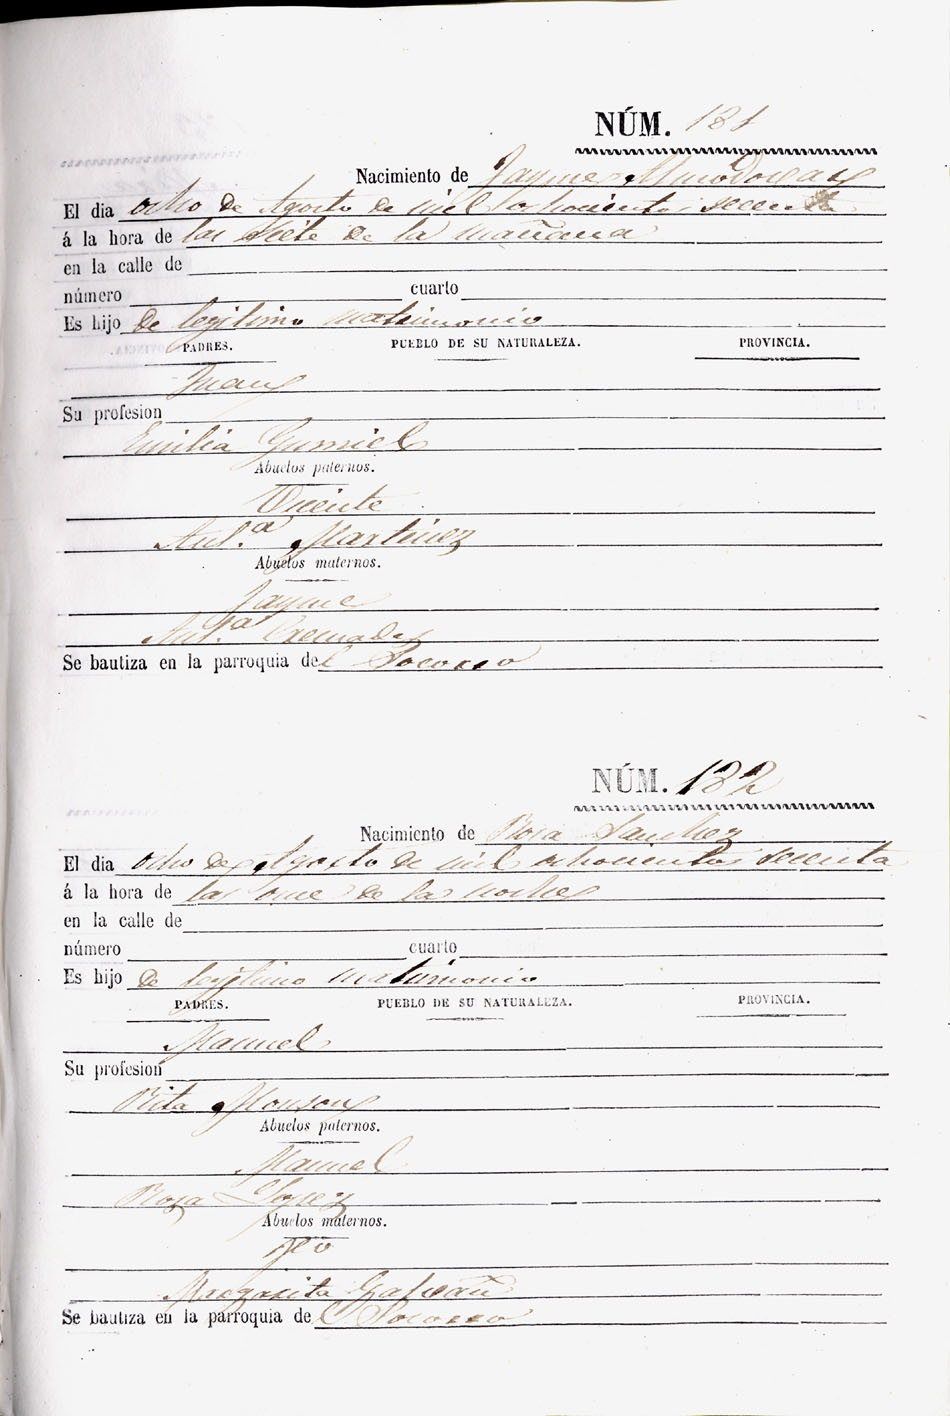 NÚM. 181
Nacimiento de Jayme Almodovar
El dia ocho de Agosto de mil ochocientos secenta
á la hora de las siete de la mañana
en la calle de
número cuarto
Es hijo de legitimo matrimonio
PADRES. PUEBLO DE SU NATURALEZA. PROVINCIA.
Juan
Su profesion
Emilia Gumiel
Abuelos paternos.
Vicente
Ant.ª Martinez
Abuelos maternos.
Jayme
Ant.ª Cremades
Se bautiza en la parroquia del Socorro
NÚM. 182
Nacimiento de Rosa Sanchez
El dia ocho de Agosto de mil ochocientos secenta
á la hora de las once de la noche
en la calle de
número cuarto
Es hijo de legitimo matrimonio
PADRES. PUEBLO DE SU NATURALEZA. PROVINCIA.
Manuel
Su profesion
Rita Monson
Abuelos paternos.
Manuel
Rosa Lopez
Abuelos maternos.
Margarita
Se bautiza en la parroquia del Socorro